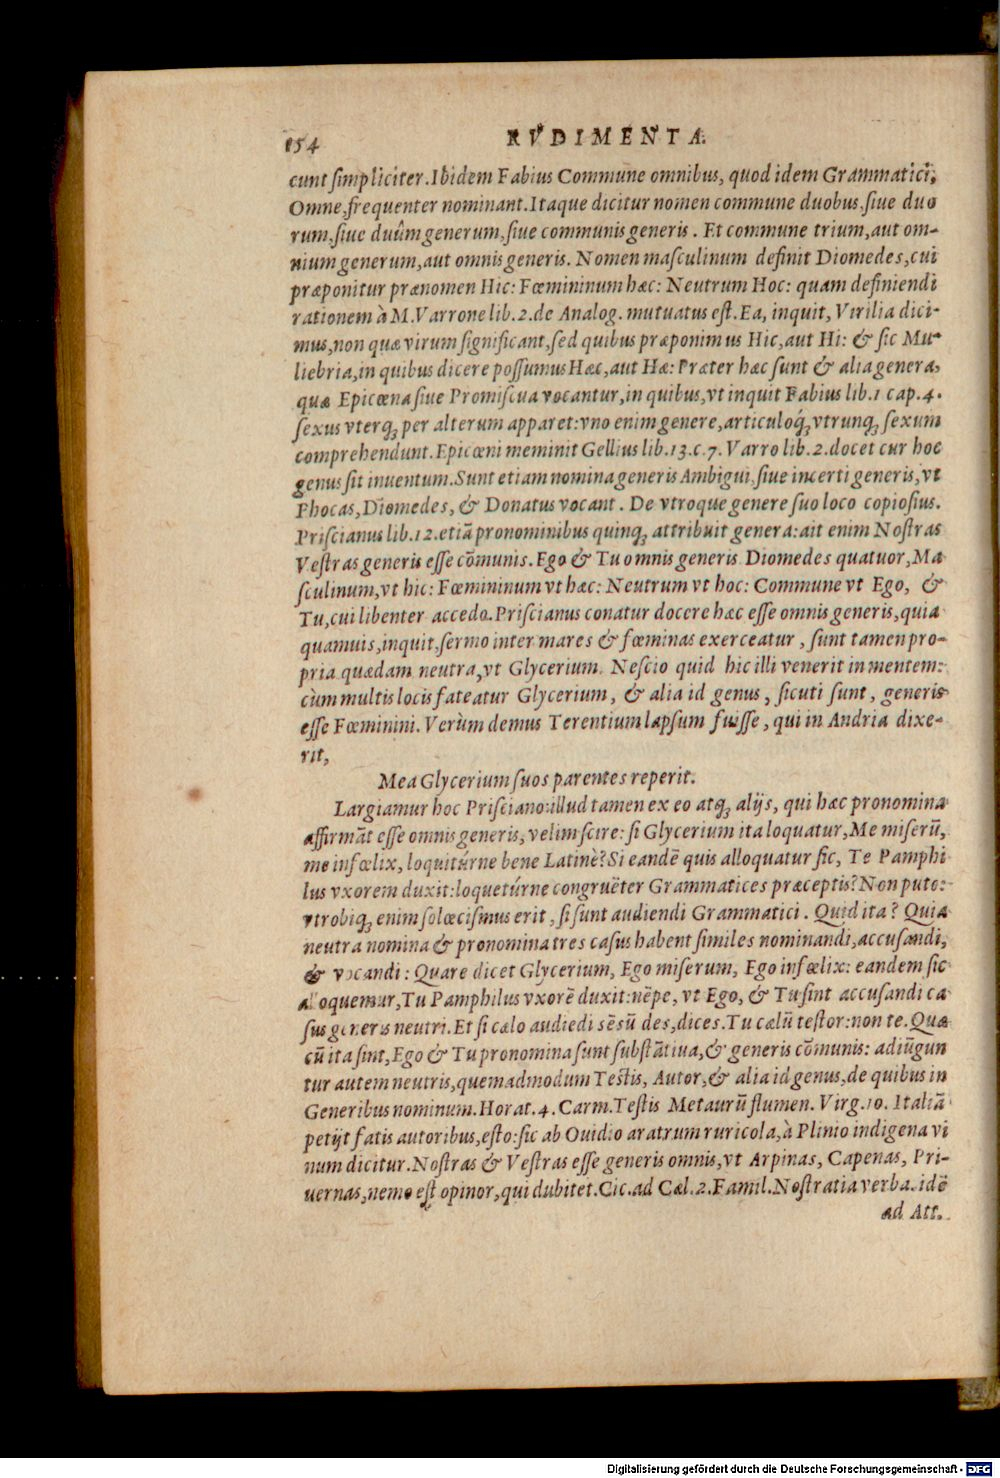 154 RVDIMENTA.
cunt ſimpliciter. Ibidem Fabius Commune omnibus, quod idem Grammatici,
Omne, frequenter nominant. Itaque dicitur nomen commune duobus, ſiue duo
rum, ſiue duûm generum, ſiue communis generis. Et commune trium, aut om-
nium generum, aut omnis generis. Nomen maſculinum definit Diomedes, cui
præponitur prænomen Hic: Fœmininum hæc: Neutrum Hoc: quam definiendi
rationem à M. Varrone lib. 2. de Analog. mutuatus eſt. Ea, inquit, Virilia dici-
mus, non quæ virum ſignificant, ſed quibus præponimus Hic, aut Hi: & ſic Mu-
liebria, in quibus dicere poſſumus Hæc, aut Hæ: Præter hæc ſunt & alia genera,
quæ Epicœna ſiue Promiſcua vocantur, in quibus, vt inquit Fabius lib. 1 cap. 4.
ſexus vterq; per alterum apparet: vno enim genere, articuloq́; vtrunq; ſexum
comprehendunt. Epicœni meminit Gellius lib. 13. c. 7. Varro lib. 2. docet cur hoc
genus ſit inuentum. Sunt etiam nomina generis Ambigui, ſiue incerti generis, vt
Phocas, Diomedes, & Donatus vocant. De vtroque genere ſuo loco copioſius.
Priſcianus lib. 12. etiā pronominibus quinq; attribuit genera: ait enim Noſtras
Veſtras generis eſſe cōmunis. Ego & Tu omnis generis Diomedes quatuor, Ma
ſculinum, vt hic: Fœmininum vt hæc: Neutrum vt hoc: Commune vt Ego, &
Tu, cui libenter accedo. Priſcianus conatur docere hæc eſſe omnis generis, quia
quamuis, inquit, ſermo inter mares & fœminas exerceatur, ſunt tamen pro-
pria quædam neutra, vt Glycerium. Neſcio quid hic illi venerit in mentem:
cùm multis locis fateatur Glycerium, & alia id genus, ſicuti ſunt, generis
eſſe Fœminini. Verùm demus Terentium lapſum fuiſſe, qui in Andria dixe-
rit,
Mea Glycerium ſuos parentes reperit.
Largiamur hoc Priſciano: illud tamen ex eo atq; alijs, qui hæc pronomina
affirmāt eſſe omnis generis, velim ſcire: ſi Glycerium ita loquatur, Me miſerū,
me infœlix, loquitúrne bene Latinè? Si eandē quis alloquatur ſic, Te Pamphi
lus vxorem duxit: loquetúrne congruēter Grammatices præceptis? Non puto:
vtrobiq; enim ſolœciſmus erit, ſi ſunt audiendi Grammatici. Quid ita? Quia
neutra nomina & pronomina tres caſus habent ſimiles nominandi, accuſandi,
& vocandi: Quare dicet Glycerium, Ego miſerum, Ego infœlix: eandem ſic
alloquemur, Tu Pamphilus vxorē duxit: nēpe, vt Ego, & Tu ſint accuſandi ca
ſus generis neutri. Et ſi cælo audiēdi sēsū des, dices. Tu cælū teſtor: non te. Quæ
cū ita ſint, Ego & Tu pronomina ſunt ſubſtātiua, & generis cōmunis: adiūgun
tur autem neutris, quemadmodum Teſtis, Autor, & alia id genus, de quibus in
Generibus nominum. Horat. 4. Carm. Teſtis Metaurū flumen. Virg. 10. Italiā
petijt fatis autoribus, eſto: ſic ab Ouidio aratrum ruricola, à Plinio indigena vi
num dicitur. Noſtras & Veſtras eſſe generis omnis, vt Arpinas, Capenas, Pri-
uernas, nemo eſt opinor, qui dubitet. Cic. ad Cæl. 2. Famil. Noſtratia verba. idē
ad Att.
Digitalisierung gefördert durch die Deutsche Forschungsgemeinschaft - DFG